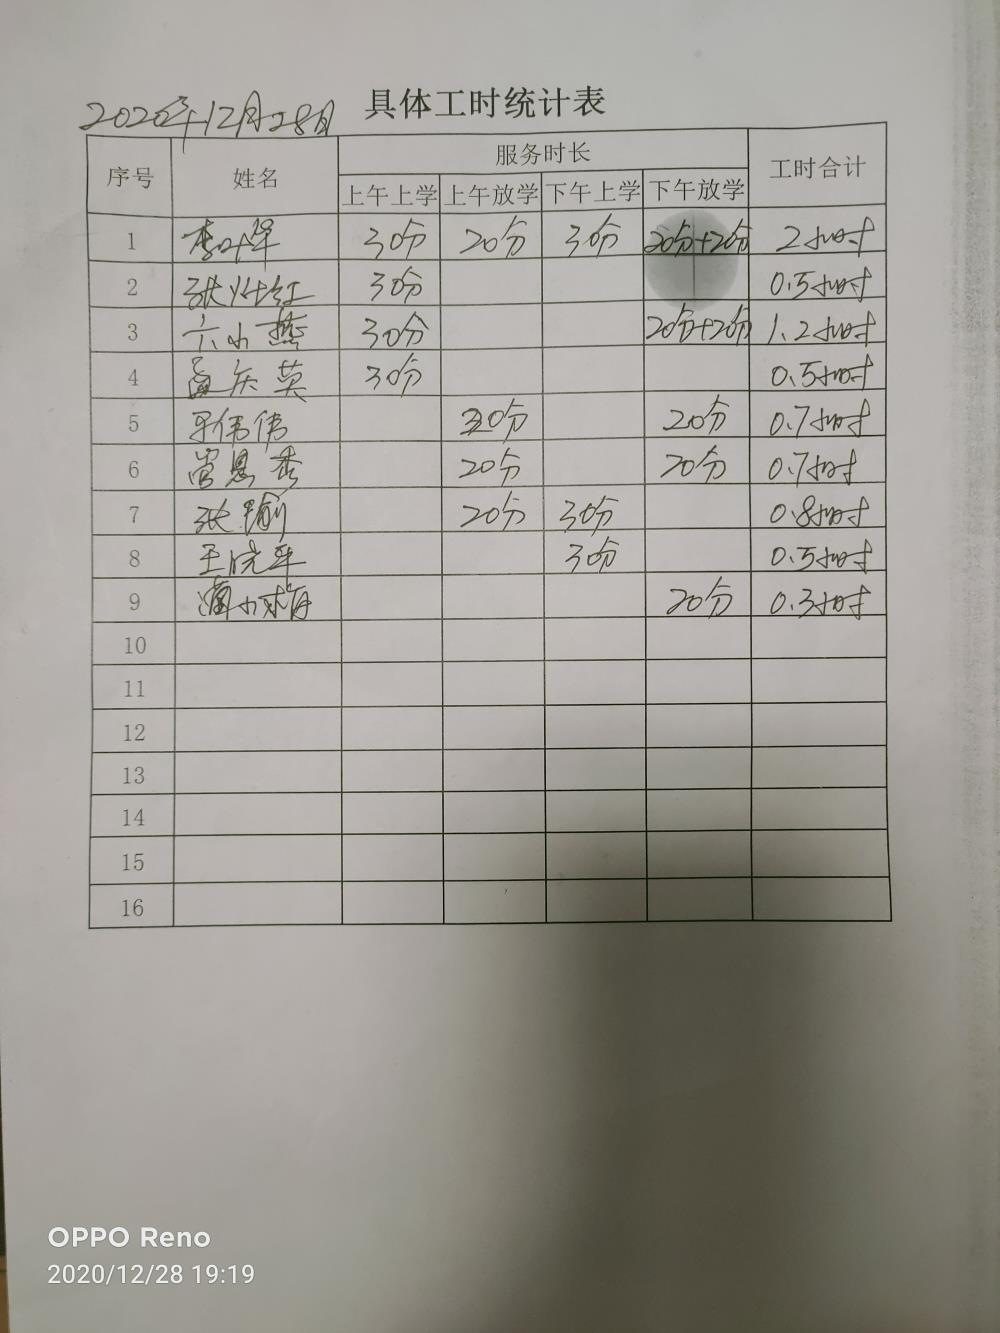 2020年12月28日 具体工时统计表
序号 姓名 服务时长 工时合计
上午上学 上午放学 下午上学 下午放学
1 李叶华 30分 20分 30分 20分+20分 2小时
2 张 红 30分 0.5小时
3 小燕 30分 20分+20分 1.2小时
4 孟庆英 30分 0.5小时
5 伟伟 20分 20分 0.7小时
6 20分 20分 0.7小时
7 张 20分 30分 0.8小时
8 王晓平 30分 0.5小时
9 小 20分 0.3小时
10
11
12
13
14
15
16
OPPO Reno
2020/12/28 19:19